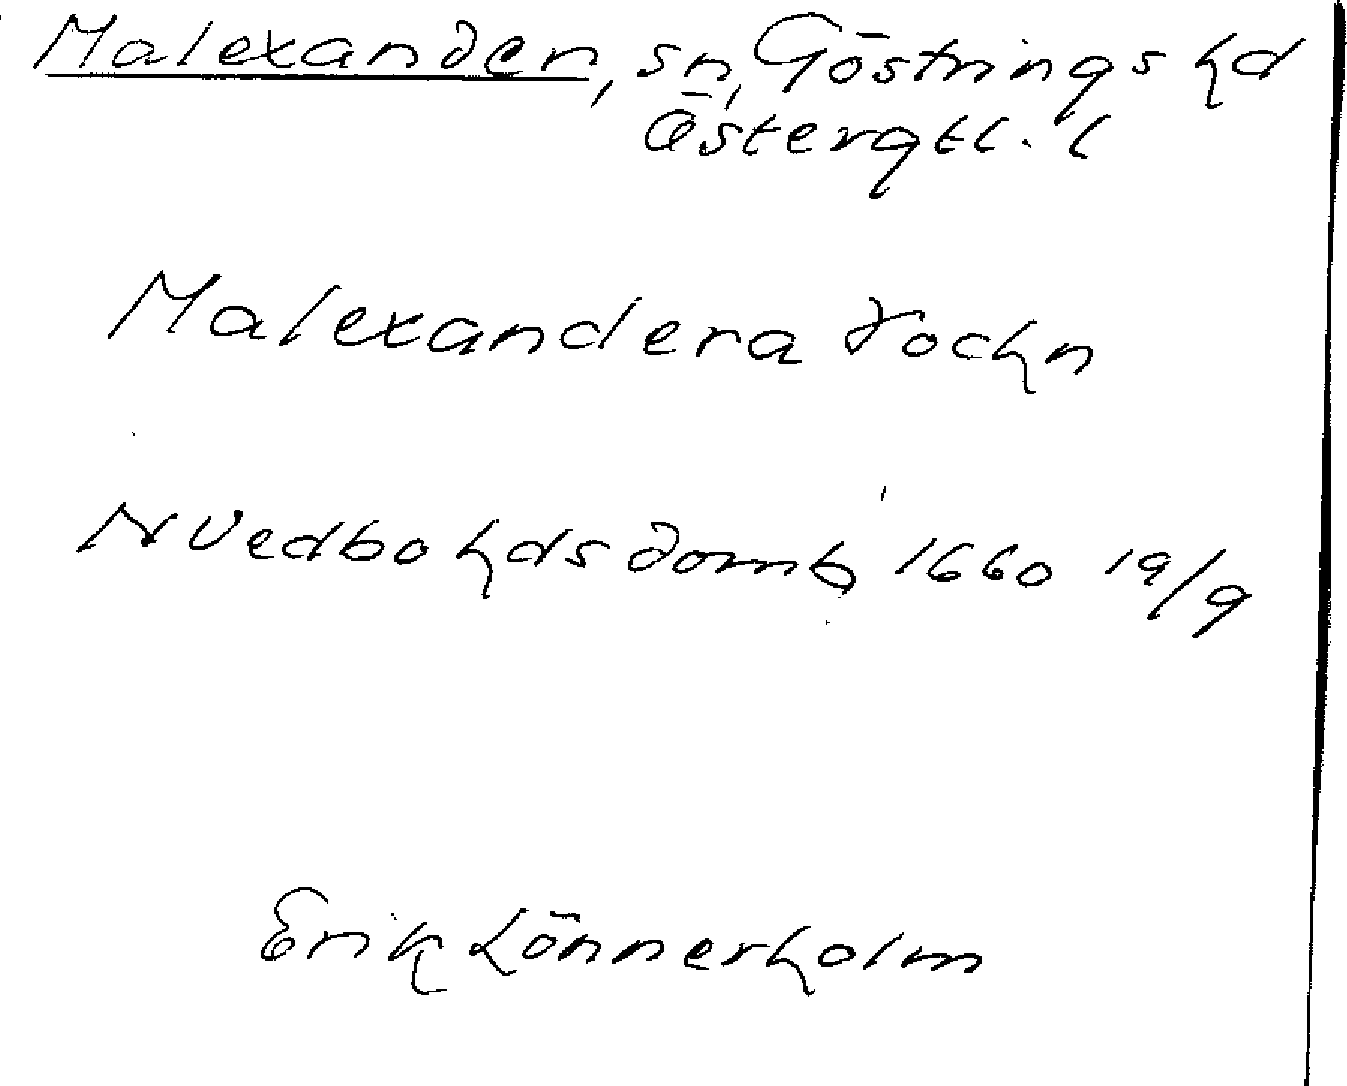 Malexander, sn, Göstrings hd
Östergtl. l
Malexandera Sochn
N Vedbo hds domb 1660 19/9
Erik Lönnerholm